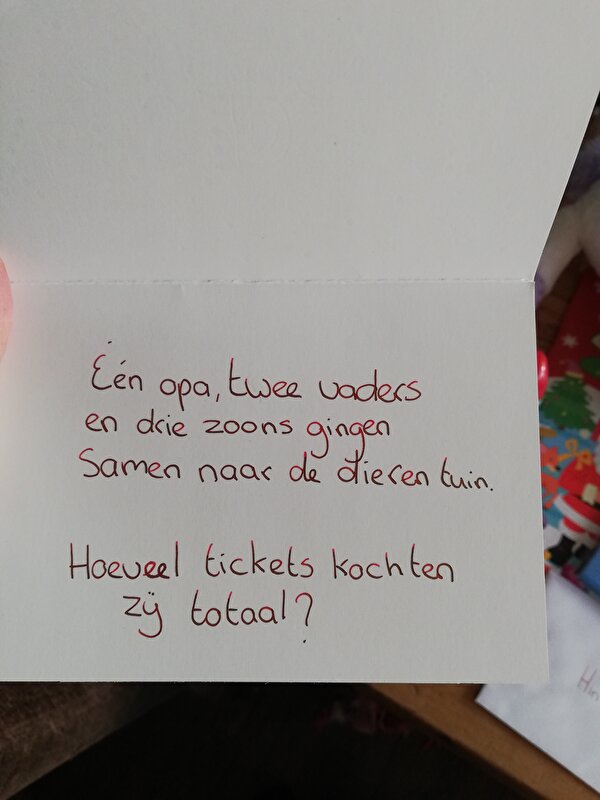 Één opa, twee vaders
en drie zoons gingen
Samen naar de dieren tuin.
Hoeveel tickets kochten
zij totaal?